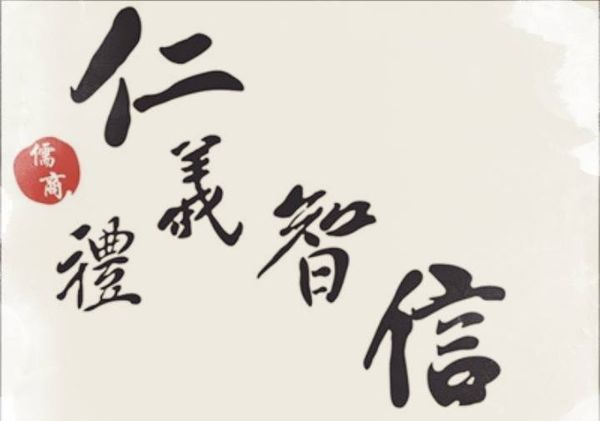 仁
義
禮
智
信
儒商